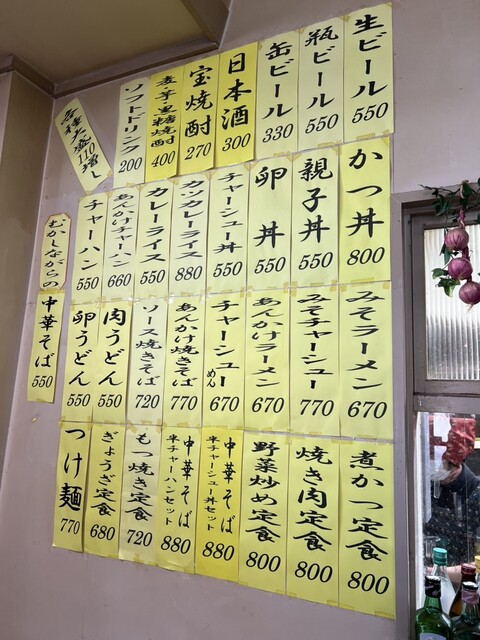 生ビール 550
瓶ビール 550
缶ビール 330
日本酒 300
宝焼酎 270
麦・芋・黒糖焼酎 400
ソフトドリンク 200
各種大盛110増し
かつ丼 800
親子丼 550
卵丼 550
チャーシュー丼 550
カツカレーライス 880
カレーライス 550
あんかけチャーハン 660
チャーハン 550
むかしながらの
中華そば 550
みそラーメン 670
みそチャーシュー 770
あんかけラーメン 670
チャーシューめん 670
あんかけ焼きそば 770
ソース焼きそば 720
肉うどん 550
卵うどん 550
煮かつ定食 800
焼き肉定食 800
野菜炒め定食 800
中華そば
半チャーシュー丼セット 880
中華そば
半チャーハンセット 880
もつ焼き定食 720
ぎょうざ定食 680
つけ麺 770